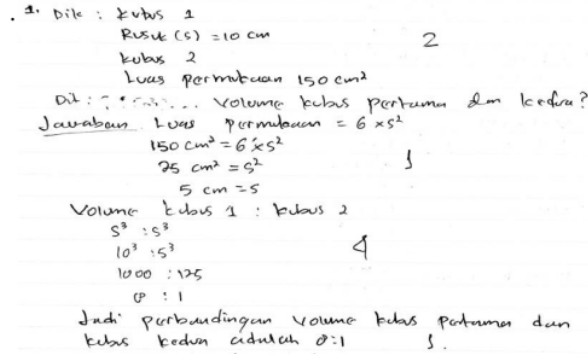 1. Dik : kubus 1
Rusuk (s) = 10 cm
2
kubus 2
Luas permukaan 150 cm²
Dit : ... volume kubus pertama dan kedua?
Jawaban Luas permukaan = 6 x s²
150 cm² = 6 x s²
25 cm² = s²
5 cm = s
Volume kubus 1 : kubus 2
s³ : s³
10³ : 5³
4
1000 : 125
8 : 1
Jadi perbandingan volume kubus pertama dan
kubus kedua adalah 8:1